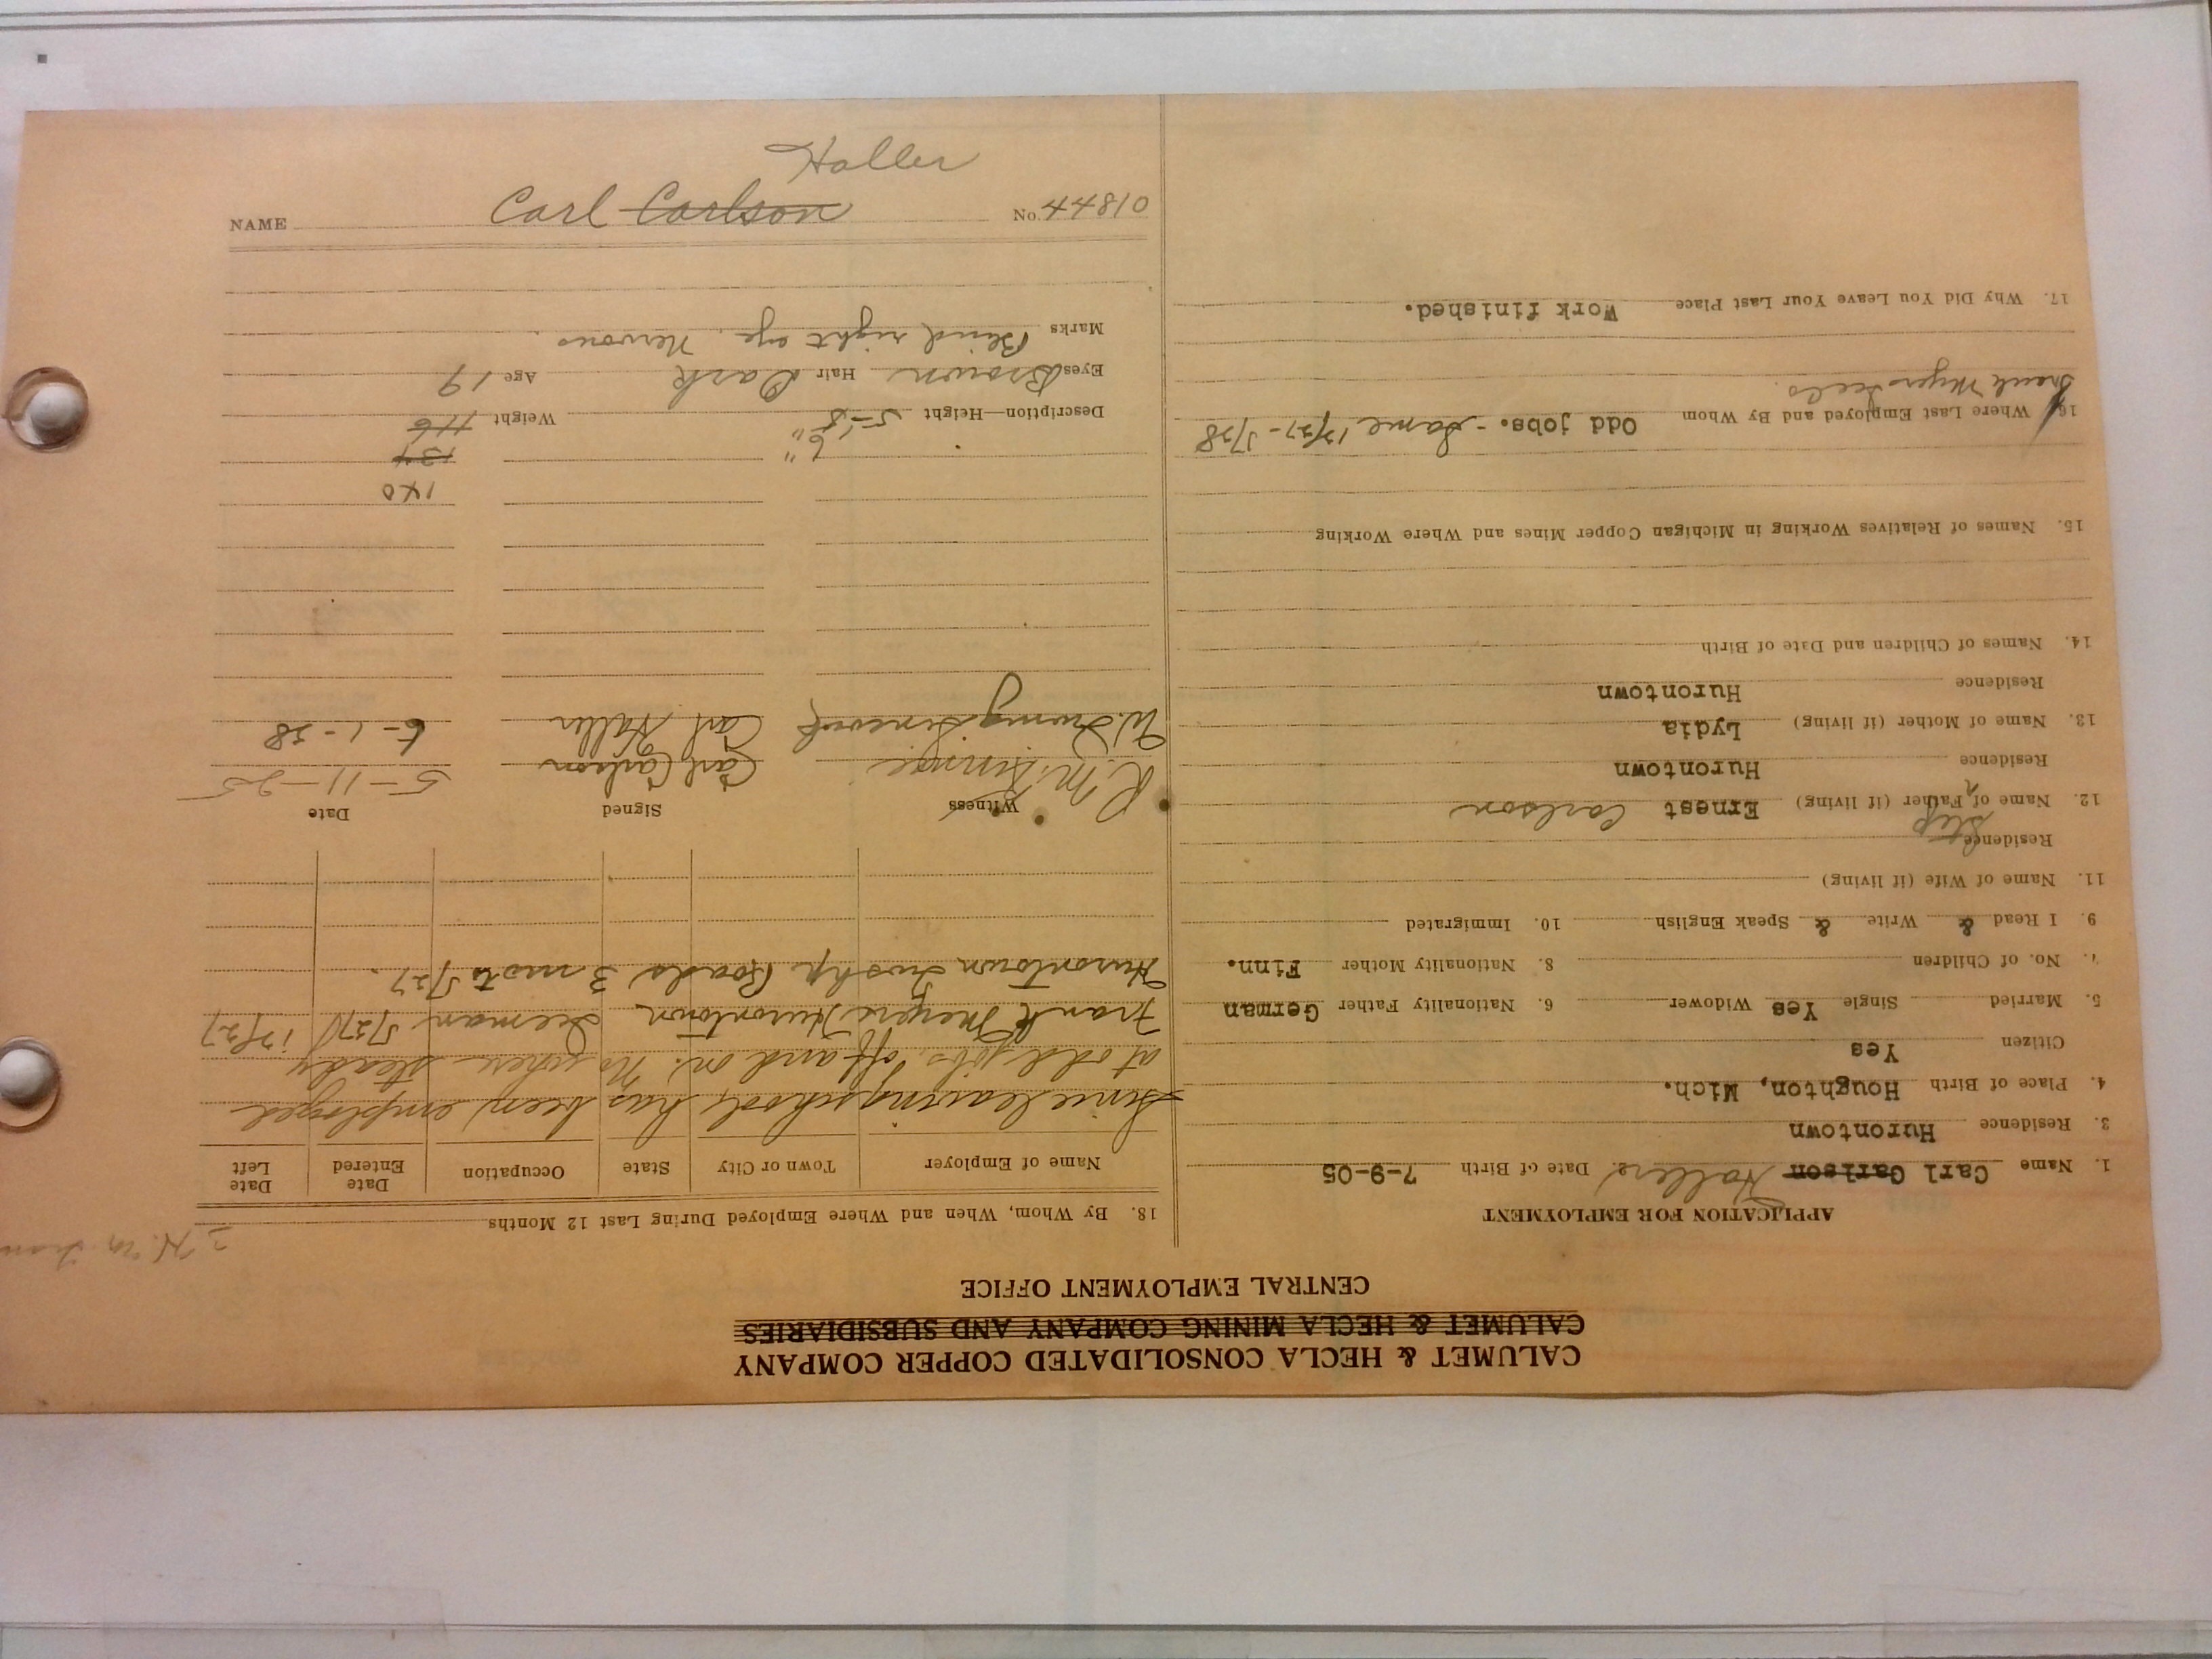 CALUMET & HECLA CONSOLIDATED COPPER COMPANY
CALUMET & HECLA MINING COMPANY AND SUBSIDIARIES
CENTRAL EMPLOYMENT OFFICE
APPLICATION FOR EMPLOYMENT
1. Name Carl Carlson Date of Birth 7-9-05
3. Residence Hurontown
4. Place of Birth Houghton, Mich.
Citizen Yes
5. Married Single Yes Widower 6. Nationality Father German
7. No. of Children 8. Nationality Mother Finn.
9. I Read & Write & Speak English 10. Immigrated
11. Name of Wife (if living)
Residence
Step
12. Name of Father (if living) Ernest Carlson
Residence Hurontown
13. Name of Mother (if living) Lydia
Residence Hurontown
14. Names of Children and Date of Birth
15. Names of Relatives Working in Michigan Copper Mines and Where Working
16. Where Last Employed and By Whom Odd jobs. - Same 12/27 - 5/28
Frank Meyers
17. Why Did You Leave Your Last Place Work finished.
18. By Whom, When and Where Employed During Last 12 Months
Name of Employer Town or City State Occupation Date Entered Date Left
Since leaving school, has been employed
at odd jobs, off and on. No where steady
Frank Meyers Hurontown 5/27 12/27
Hurontown Roads 3 5/27.
Witness Signed Date
Carl Carlson 5-11-25
Carl Haller 6-1-28
140
6" 134
Description—Height 5-5 Weight 116
Eyes Brown Hair Dark Age 19
Marks Blind right eye. Nervous.
NAME Carl Carlson No. 44810
Haller